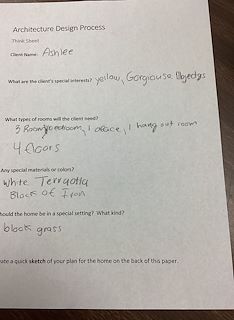 Architecture Design Process
Think Sheet
Client Name: Ashlee
What are the client's special interests? yellow, Gorgiouse Objedgs
What types of rooms will the client need?
3 Room, 1 office, 1 hang out room
4 floors
Any special materials or colors?
White Terracotta
Block of Iron
hould the home be in a special setting? What kind?
block grass
ate a quick sketch of your plan for the home on the back of this paper.